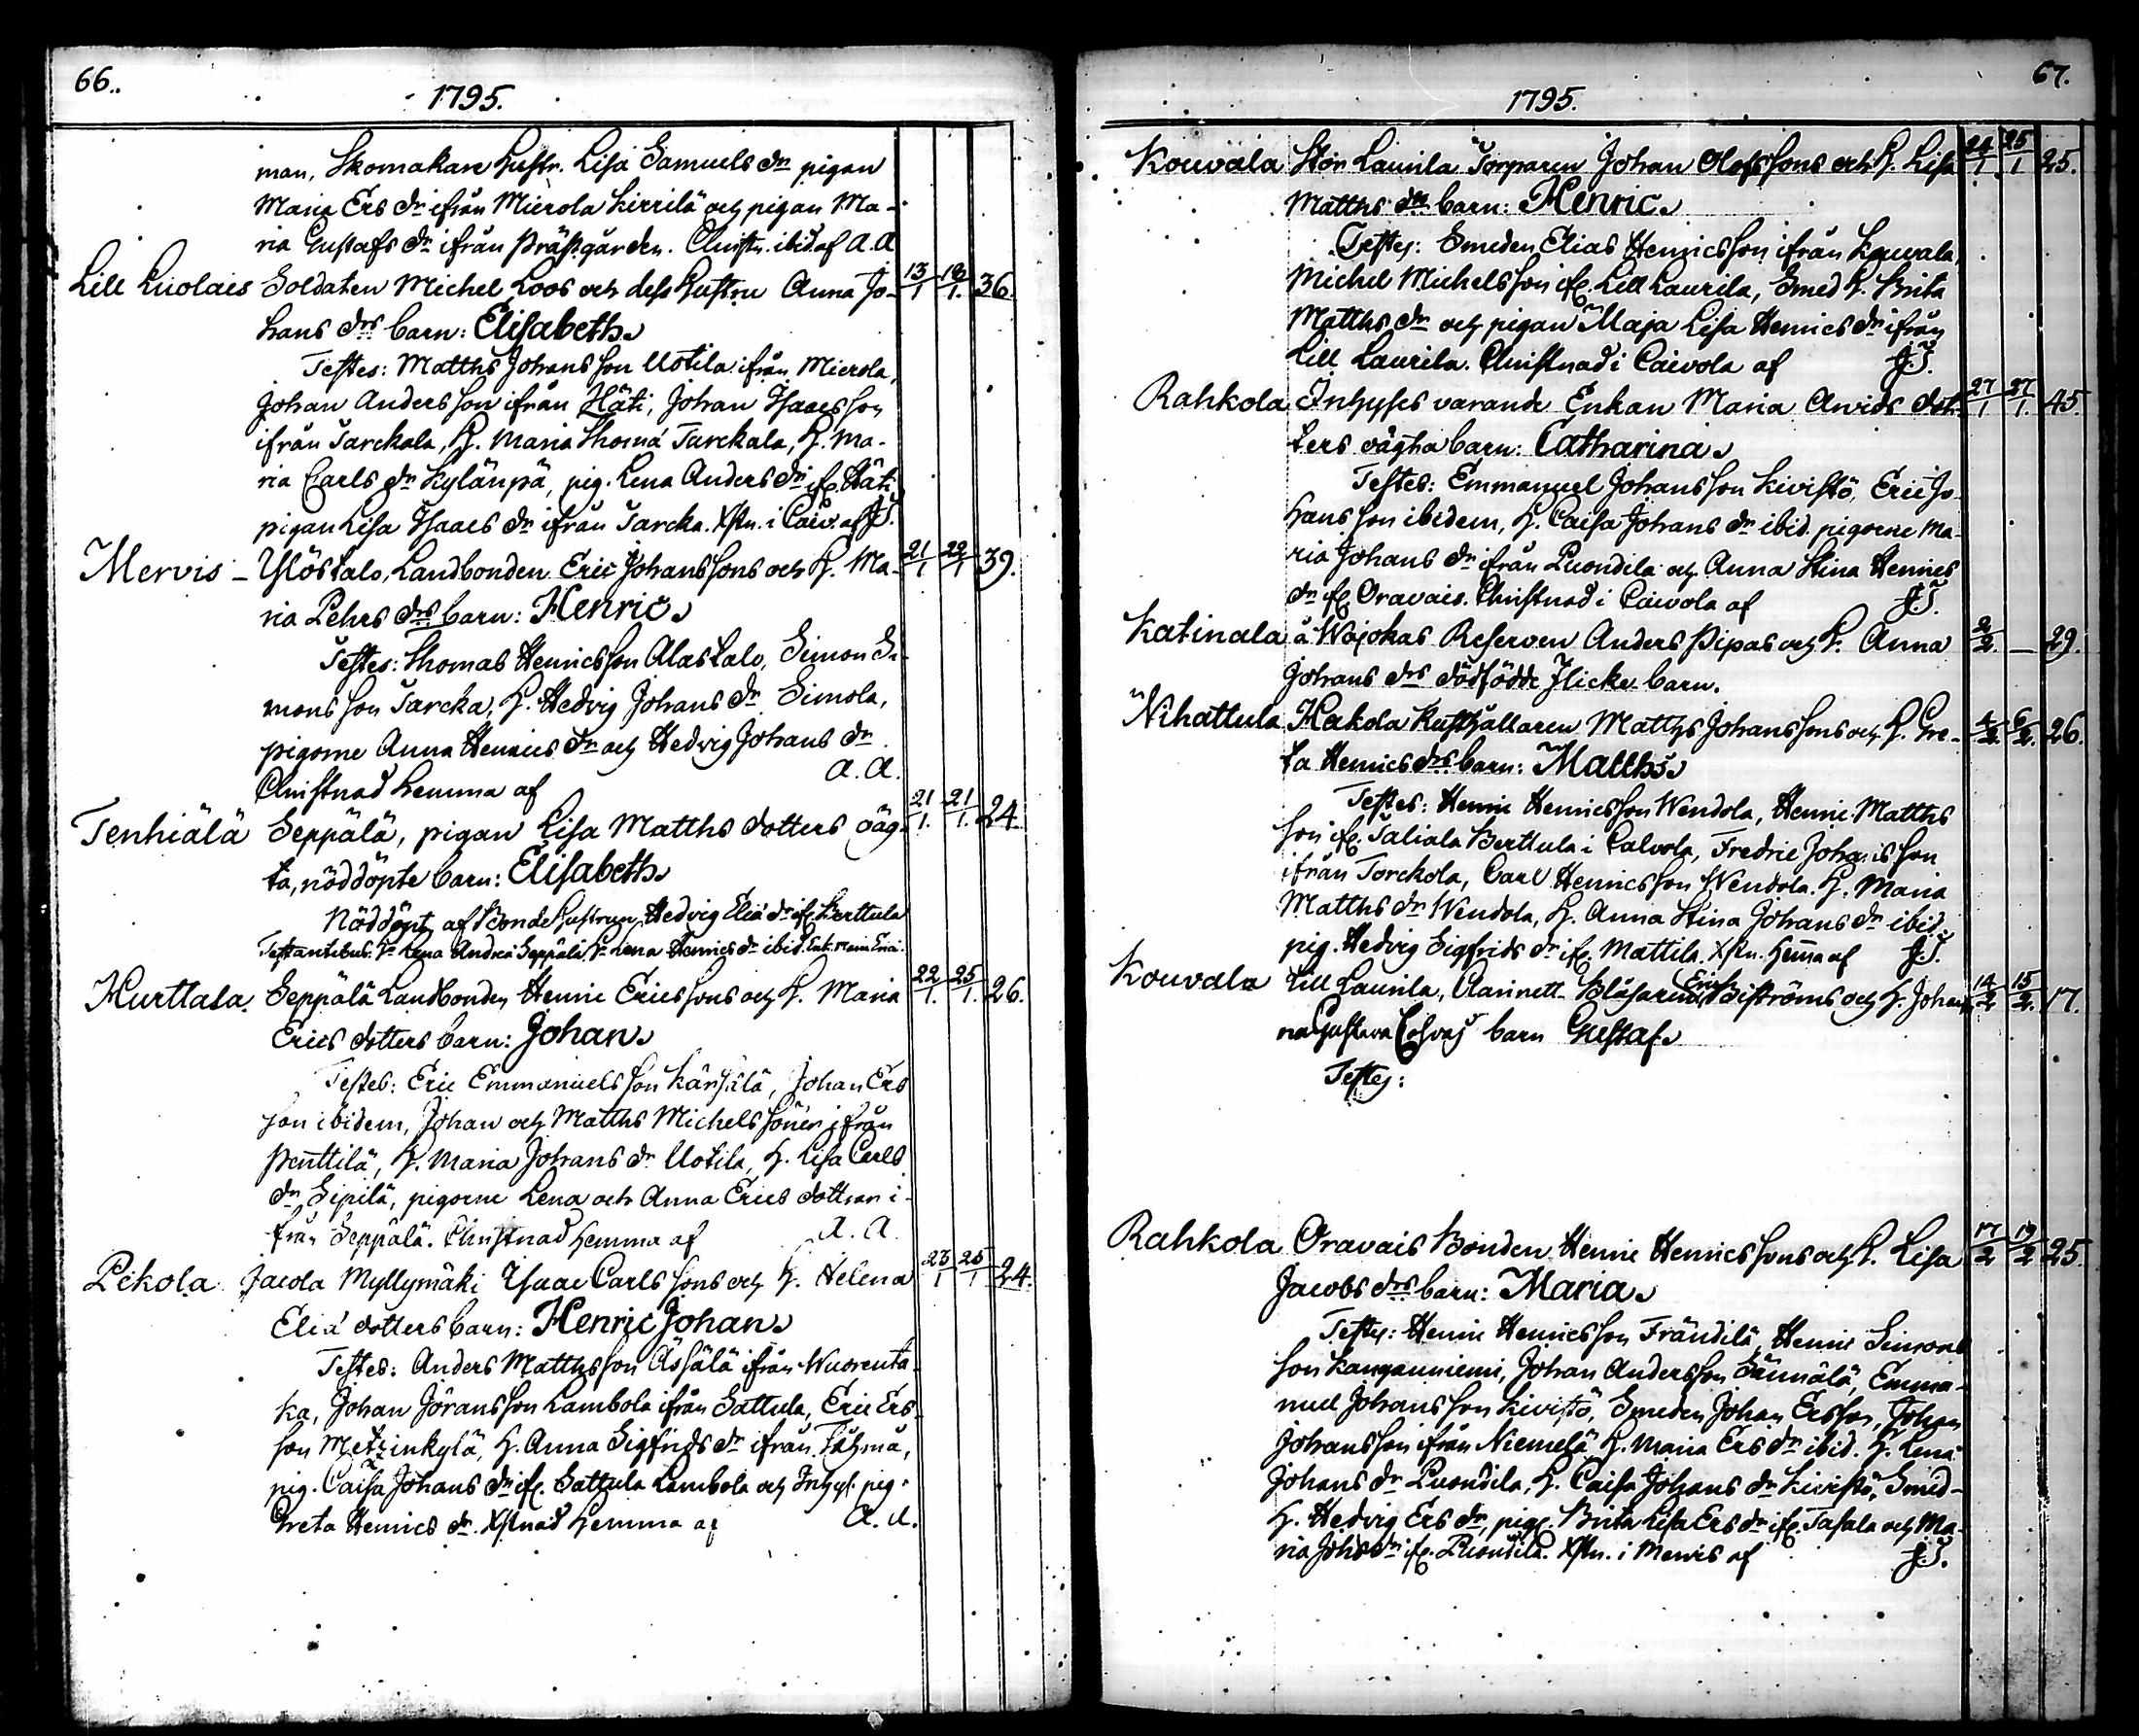 66.
1795.
man, Skomakare Hustr. Lisa Samuels dr pigan
Maria Ers dr ifrån Mierola Kirrilä och pigan Ma-
ria Gustafs dr ifrån Prästgården. Christn. ibid. af A. A
Lill Luolais Soldaten Michel Loos och dess Hustru Anna Jo- 13/1 18/1. 36.
hans drs barn: Elisabeth.
Testes: Matths Johansson Uotila ifrån Mierola,
Johan Andersson ifrån Häti, Johan Isaacsson
ifrån Tarckala, H. Maria Thomæ Tarckala, H. Ma-
ria Carls dr Kylänpä, pig. Lena Anders dr ifr. Häti
pigan Lisa Isaacs dr ifrån Tarcka. Xstn. i Caiv. af J.T.
Mervis - Ylöstalo, Landbonden Eric Johanssons och H. Ma- 21/1 22/1 39.
ria Pehrs drs barn: Henric.
Testes: Thomas Henricsson Alastalo, Simon Si-
monsson Tarcka, H. Hedvig Johans dr Simola,
pigorne Anna Henrics dr och Hedvig Johans dr.
Christnad hemma af A. A.
Tenhiälä Seppälä, pigan Lisa Matths dotters oäg- 21/1. 21/1. 24.
ta, nöddöpte barn: Elisabeth.
Nöddöpt af Bonde Hustrun Hedvig Eliæ dr ifr. Perttula
Testantibus: Hr Lena Andreæ Seppälä, Hr Lena Henrics dr ibid. Enk. Maria Erici.
Hurttala. Seppälä Landbonden Henric Ericssons och H. Maria 22/1. 25/1. 26.
Erics dotters barn: Johan.
Testes: Eric Emmanuelsson Kärsälä, Johan Ers
son ibidem, Johan och Matths Michelssöner ifrån
Penttilä, H. Maria Johans dr Uotila, H. Lisa Carls
dr Sipilä, pigorne Lena och Anna Erics döttrar i-
från Seppälä. Christnad hemma af A. A.
Pekola Jacola Myllymäki Isaac Carlssons och H. Helena 23/1 25/1 24.
Eliæ dotters barn: Henric Johan.
Testes: Anders Matthsson Ässälä ifrån Wuorenta-
ka, Johan Jöransson Lambola ifrån Sattula, Eric Ers-
son Metzinkylä, H. Anna Sigfrids dr ifrån
pig. Caisa Johans dr ifr. Sattula Lambola och Inhys. pig.
Greta Henrics dr. Xstnad hemma af A. A.
67.
1795.
Kouvala Stor Laurila Torparen Johan Olofssons och H. Lisa 24/1 25/1 25.
Matths drs barn: Henric.
Testes: Smeden Elias Henricsson ifrån Kouvala,
Michel Michelsson ifr. Lill Laurila, Smed H. Brita
Matths dr och pigan Maja Lisa Henrics dr ifrån
Lill Laurila. Christnad i Caivola af J.T.
Rahkola Inhyses varande Enkan Maria Arvids dot- 27/1 27/1. 45.
ters oägta barn: Catharina.
Testes: Emmanuel Johansson Kivistö, Eric Jo-
hansson ibidem, H. Caisa Johans dr ibid. pigorne Ma-
ria Johans dr ifrån Puondila och Anna Stina Henrics
dr ifr. Oravais. Christnad i Caivola af J.T.
Katinala å Wojokas Reserven Anders Pipas och H. Anna 2/2. — 29.
Johans drs dödfödde flicke barn.
Nihattula Hakola Rusthållaren Matths Johanssons och H. Gre- 4/2. 6/2. 26.
ta Henrics drs barn: Matths.
Testes: Henric Henricsson Wendola, Henric Matths
son ifr. Taliala Berttula i Calvola, Fredric Johansson
ifrån Torckola, Carl Henricsson Wendola. H. Maria
Matths dr Wendola, H. Anna Stina Johans dr ibid.
pig. Hedvig Sigfrids dr ifr. Mattila. Xstn. hema af J.T.
Kouvala Lill Laurila, Clarinett-Blåsaren Erich Biströms och H. Johan- 14/2 15/2. 17.
na Gustava barn Gustaf.
Testes:
Rahkola Oravais Bonden Henric Henricssons och H. Lisa 17/2 19/2 25.
Jacobs drs barn: Maria.
Testes: Henric Henricsson Frändilä, Henric Simons
son Kanganniemi, Johan Andersson Sännälä, Emma-
nuel Johansson Kivistö, Smeden Johan Ersson, Johan
Johansson ifrån Niemelä H. Maria Ers dr ibid. H. Lena
Johans dr Puondila, H. Caisa Johans dr Kivistö, Smed-
H. Hedvig Ers dr, pig. Brita Lisa Ers dr ifr. Tasala och Ma-
ria Johs dr ifr. Puondila. Xstn. i Mervis af J.T.